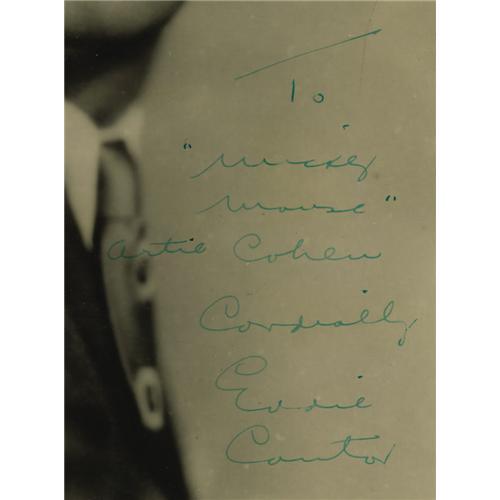 To
"Mickey
Mouse"
Artie Cohen
Cordially
Eddie
Cantor